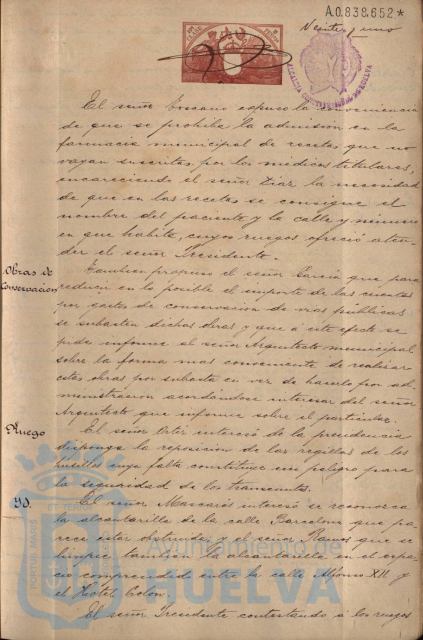 A.0.838.652*
Veinte y uno
ALCALDIA CONSTITUCIONAL DE HUELVA
El señor Toscano expuso la conveniencia
de que se prohiba la admision en la
farmacia municipal de recetas que no
vayan suscritas por los médicos titulares,
encareciendo el señor Diaz la necesidad
de que en las recetas se consigne el
nombre del paciente y la calle y número
en que habita, cuyos ruegos ofreció aten-
der el señor Presidente.
Obras de
Conservación
Tambien propuso el señor García que para
reducir en lo posible el importe de las cuentas
por gastos de conservacion de vias publicas
se subasten dichas obras y que á este efecto se
pida informe al señor Arquitecto municipal
sobre la forma mas conveniente de realizar
estas obras por subasta en vez de hacerlo por ad-
ministracion acordandose interesar del señor
Arquitecto que informe sobre el particular.
Ruego
El señor Ortiz interesó de la presidencia
disponga la reposicion de las regillas de los
husillos cuya falta constituye un peligro para
la seguridad de los transeuntes.
Yd.
El señor Mascarós interesó se reconozca
la alcantarilla de la calle Barcelona que pa-
rece estar obstruida, y el señor Ramos que se
limpie tambien la alcantarilla en el espa-
cio comprendido entre la calle Alfonso XII y
el Hotel Colón.
El señor Presidente contestando á los ruegos
PORTUS MARIS
Ayuntamiento de
HUELVA